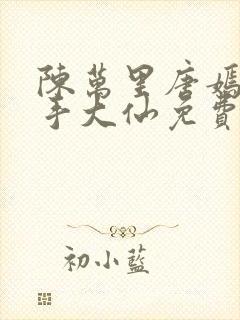 陳萬里唐嫣
手大仙免費
初小藍